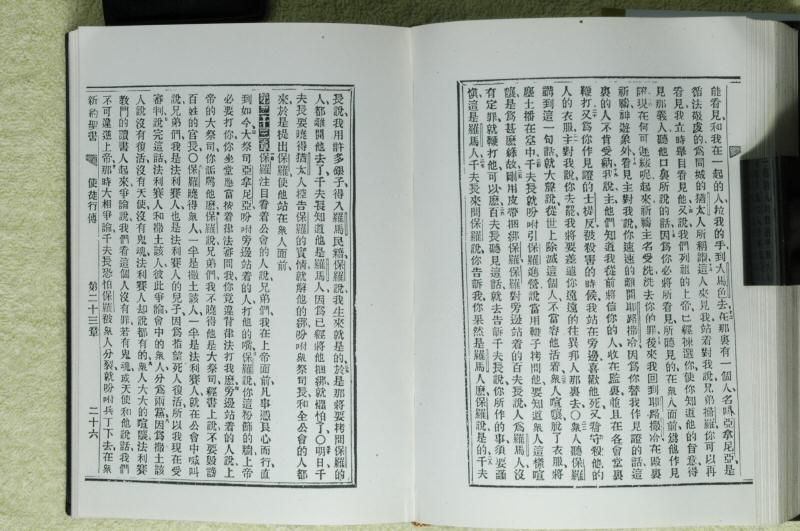 能看見和我在一起的人拉我的手到大馬色去在那裏有一個人名叫亞拿尼亞是
循法敬虔的爲同城的猶太人所稱讚這人來見我站着對我說兄弟掃羅你可以再
看見我立時舉目看見他又說我們列祖的上帝已經揀選你使你知道他的旨意得
見那義人聽他口裏所說的話因爲你必將所看見所聽見的在衆人面前爲他作見
證現在何可遲緩呢起來祈禱主名受洗洗去你的罪後來我回到耶路撒冷在殿裏
祈禱神遊象外看見主對我說你速速的離開耶路撒冷因爲你替我作見證的話這
裏的人不肯受納我說主他們知道我從前將信你的人收在監裏並且在各會堂裏
鞭打又爲你作見證的士提反被殺害的時候我站在旁邊喜歡他死又看守殺他的
人的衣服主對我說你去罷我將要差遣你遠遠的往異邦人那裏去〇衆人聽保羅
講到這一句話就大聲說從世上除滅這個人不當容他活着衆人喧嚷脫了衣服將
塵土播在空中千夫長就吩咐引保羅進營說當用鞭子拷問他要知道衆人這樣喧
嚷是爲甚麽緣故剛用皮帶捆綁保羅保羅對旁邊站着的百夫長說人爲羅馬人沒
有定罪就鞭打他可以麽百夫長聽見這話就去告訴千夫長說你所作的事須要謹
愼這是羅馬人千夫長來問保羅說你告訴我你果然是羅馬人麽保羅說是的千夫
長說我用許多銀子得入羅馬民籍保羅說我生來就是的於是那將要拷問保羅的
人都離開他去了千夫長知道他是羅馬人因爲已經將他捆綁就懼怕了〇明日千
夫長要曉得猶太人控告保羅的實情就解他的綁吩咐衆祭司長和全公會的人都
來於是提出保羅使他站在衆人面前
第二十三章保羅注目看着公會的人說兄弟們我在上帝面前凡事憑良心而行直
到如今大祭司亞拿尼亞吩咐旁邊站着的人打他的嘴保羅說你這粉飾的牆上帝
必要打你你坐堂應當按着律法審問我你竟違背律法打我麽旁邊站着的人說上
帝的大祭司你詬罵他麽保羅說兄弟們我不曉得他是大祭司經書上說不要毀謗
百姓的官長〇保羅曉得衆人一半是撒土該人一半是法利賽人就在公會中喊叫
說兄弟們我是法利賽人也是法利賽人的兒子因爲指望死人復活所以我現在受
審判說完這話法利賽人和撒土該人彼此爭論會中的衆人分爲兩黨因爲撒土該
人說沒有復活沒有天使沒有鬼魂法利賽人却說都有的衆人大大的喧嚷法利賽
敎門的讀書人起來爭論說我們看這個人沒有罪若有鬼魂或天使和他說話我們
不可違逆上帝那時大相爭論千夫長恐怕保羅被衆人分裂就吩咐兵丁下去在衆
新約聖書 使徒行傳 第二十三章 二十六